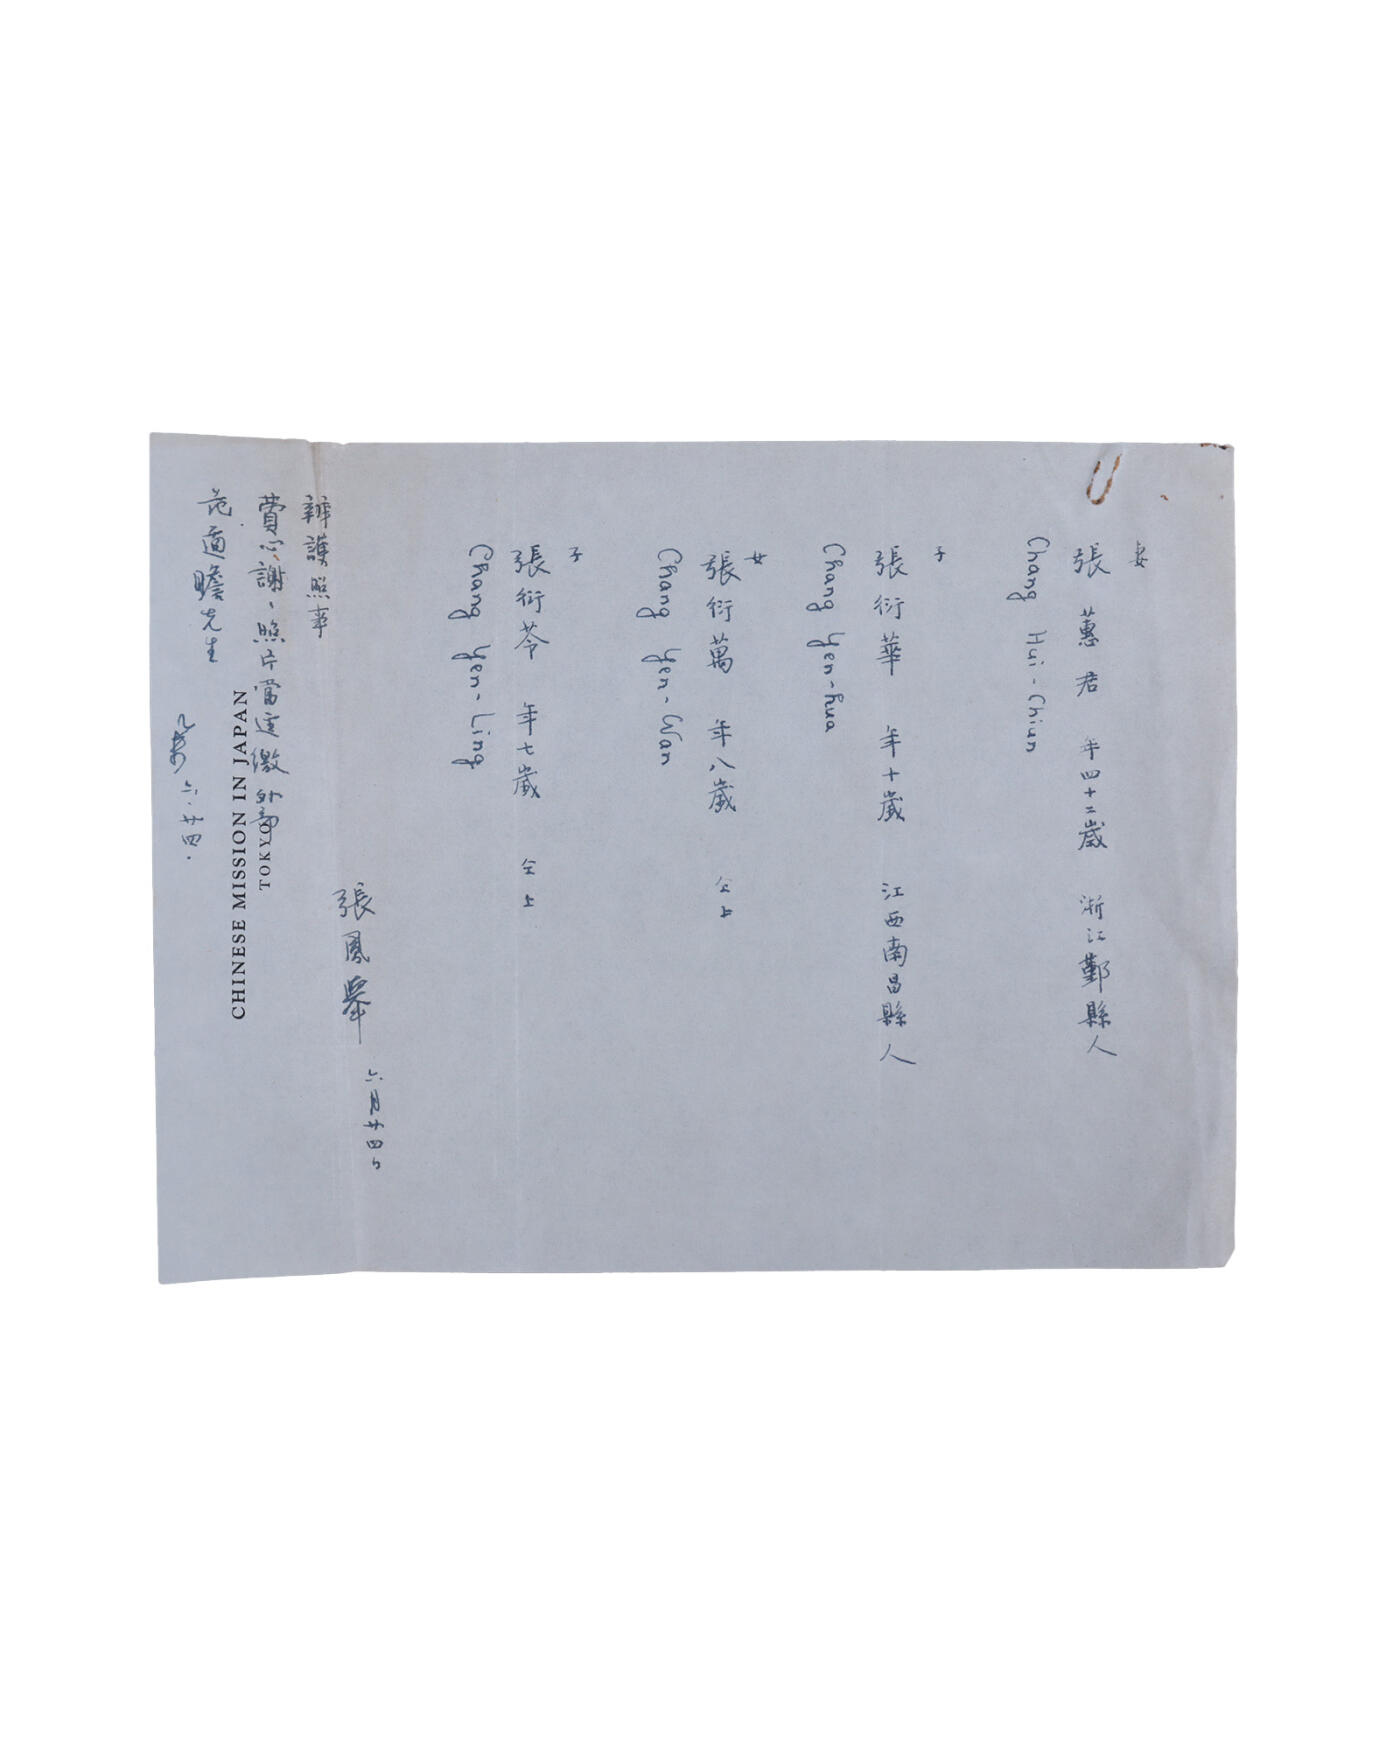 妻
張蕙君 年四十二歲 浙江鄞縣人
Chang Hui-Chiun
子
張衍華 年十歲 江西南昌縣人
Chang Yen-hua
女
張衍萬 年八歲 仝上
Chang Yen-Wan
子
張衍苓 年七歲 仝上
Chang Yen-Ling
張鳳舉
六月廿四日
辦護照事
費心謝、照片當逕繳外部
范適瞻先生
六.廿四.
CHINESE MISSION IN JAPAN
TOKYO